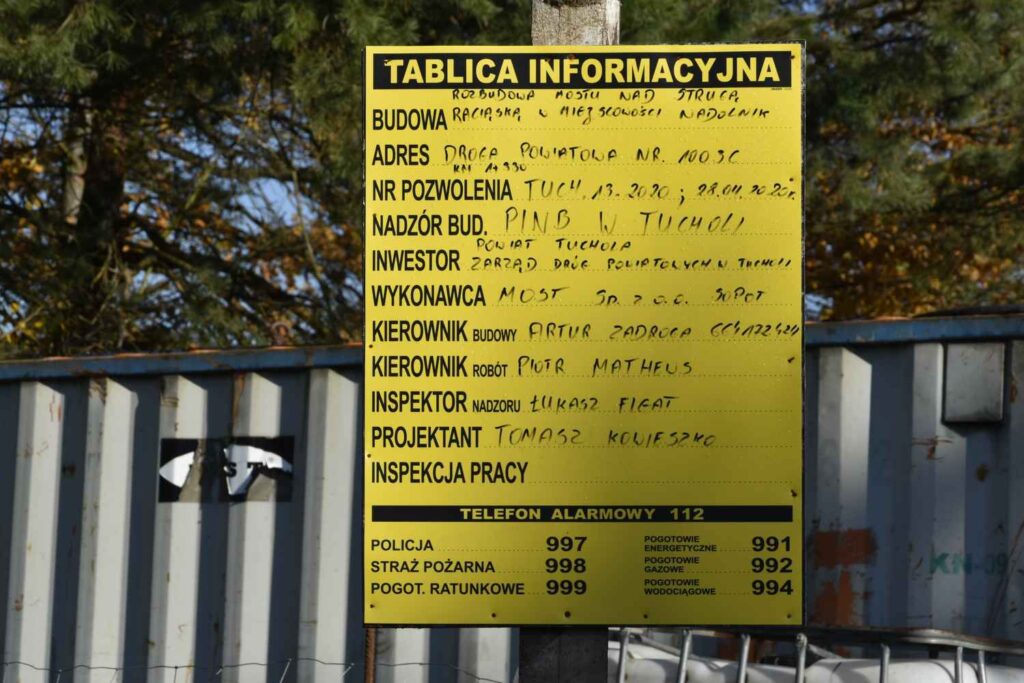 TABLICA INFORMACYJNA
ROZBUDOWA MOSTU NAD STRUGĄ
BUDOWA RACIĄSKĄ W MIEJSCOWOŚCI NADOLNIK
ADRES DROGA POWIATOWA NR. 1003C
KM 14+930
NR POZWOLENIA TUCH. 13.2020 ; 28.04.2020r.
NADZÓR BUD. PINB W TUCHOLI
POWIAT TUCHOLA
INWESTOR ZARZĄD DRÓG POWIATOWYCH W TUCHOLI
WYKONAWCA MOST Sp. z o.o. SOPOT
KIEROWNIK BUDOWY ARTUR ZADROGA
KIEROWNIK ROBÓT PIOTR MATHEUS
INSPEKTOR NADZORU ŁUKASZ FIGAT
PROJEKTANT TOMASZ KOWIESZKO
INSPEKCJA PRACY
TELEFON ALARMOWY 112
POLICJA 997
STRAŻ POŻARNA 998
POGOT. RATUNKOWE 999
POGOTOWIE
ENERGETYCZNE 991
POGOTOWIE
GAZOWE 992
POGOTOWIE
WODOCIĄGOWE 994